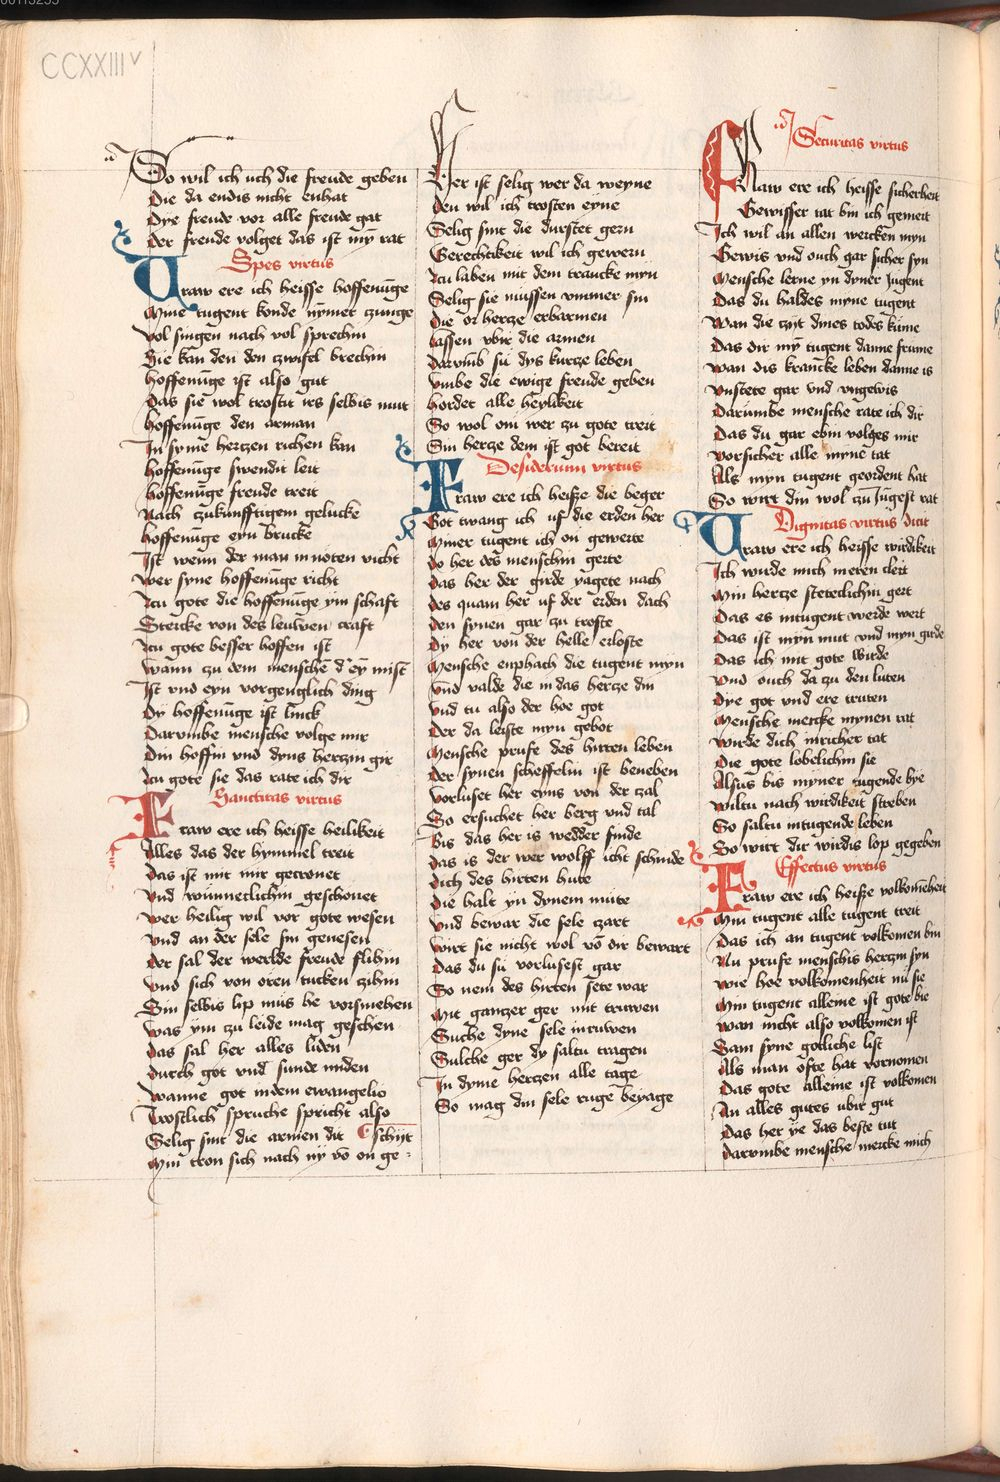 CCXXIII v
So wil ich uch die freude geben
Die da endis nicht enhat
Dye freude vor alle freude gat
der freude volget das ist my̅ rat
Spes virtus
Vraw ere ich heisse hoffenu̅ge
Myne tugent konde ny̅mer zunge
Vol singen nach vol sprechin
Sie kan den den zwifel brechin
hoffenu̅ge ist also gut
das sie wol trostit irs selbis mut
hoffenu̅ge den arman
In syme hertzen richen kan
hoffenu̅ge swendit leit
hoffenu̅ge freude treit
Nach zukunfftigem gelucke
hoffenu̅ge eyn brucke
Ist wenn der man in noten vicht
wer syne hoffenu̅ge richt
Zcu gote die hoffenu̅ge ym schaft
Stercke von des leuwen craft
Zcu gote besser hoffen ist
wann zu dem mensche̅ d' ey̅ mist
Ist vnd eyn vorgenglich ding
Dy hoffenu̅ge ist linck
Darumbe mensche volge mir
Din hoffin vnd dyns hertzin gir
Zcu gote sie das rate ich dir
Sanctitas virtus
Fraw ere ich heisse heilikeit
Alles das der hymmel treit
das ist mit mir gecronet
Vnd wu̅neclichin geschonet
wer heilig wil vor gote wesen
Vnd an der sele sin genesen
der sal der werlde freude flihin
Vnd sich von oren tucken zihin
Sin selbis lip mus he vorsmehen
was ym zu leide mag geschen
das sal her alles liden
durch got vnd sunde miden
Wanne got indem ewangelio
Trostlich spruche spricht also
Selig sint die armen dit schijt
Min tron sich nach ny vo̅ on ge-
Der ist selig wer da weyne
den wil ich trosten eyne
Selig sint die durstet gern
Gerechtikeit wil ich gewern
Zcu laben mit dem trancke myn
Selig sie mussen ummer sin
die or hertze erbarmen
lassen vbir die armen
darumb su dys kurtze leben
Vmbe die ewige freude geben
hordet alle heylikeit
So wol om wer zu gote treit
Sin hertze dem ist got bereit
Desiderium virtus
Fraw ere ich heisze die beger
Got twang ich uf die erden her
Miner tugent ich on gewerte
do her des menschin gerte
das her der girde yagete nach
des quam her uf der erden dach
den synen gar zu troste
Dy her von der helle erloste
Mensche enphach die tugent myn
Vnd valde die in das hertze din
Vnd tu also der hoe got
Der da leiste myn gebot
Mensche prufe des hirten leben
der synen scheffelin ist beneben
Vorluset her eyns von der zal
So ersuchet her berg vnd tal
Bis das her is wedder finde
das is der wer wolff icht schinde
dich des hirten hute
die halt yn dynem mute
Vnd bewar die sele zart
wirt sie nicht wol vo̅ dir bewart
das du su vorlusest gar
So nem des hirten sete war
Mit gantzer ger mit truwen
Suche dyne sele in ruwen
Sulche ger dy saltu tragen
In dyme hertzen alle tage
So mag din sele ruge beyage
Securitas virtus
Fraw ere ich heisse sicherheit
Gewisser tat bin ich gemeit
Ich wil an allen wercken myn
Gewis vnd ouch gar sicher syn
Mensche lerne yn dyner Jugent
Das du haldes myne tugent
Wan die zijt dines todes kume
Das dir my̅ tugent danne frume
wan dis krancke leben danne is
Vnstete gar vnd vngewis
Darumbe mensche rate ich dir
Das du gar ebin volges mir
Vorsicher alle myne tat
Als myn tugent geordent hat
So wirt din wol zu Jugest rat
Dignitas virtus dicit
Vraw ere ich heisse wirdikeit
Ich wirde mich meren cleit
Min hertze steteclichin gert
Das es intugent werde wert
Das ist myn mut vnd myn girde
Das ich mit gote wirde
Vnd ouch da zu den luten
Dye got vnd ere truten
Mensche mercke mynen rat
wirde dich in richer tat
Die gote lobelichin sie
Alsus bis myner tugende bye
wiltu nach wirdikeit streben
So saltu intugende leben
So wirt dir wirdis lop gegeben
Effectus virtus
Fraw ere ich heisze volkome̅heit
Min tugent alle tugent treit
Das ich an tugent volkomen bin
Nu prufe menschis hertzin syn
wie hoe volkomenheit nu sie
Min tugent alleine ist gote bie
wan nicht also volkomen ist
Sam syne gotliche list
Als man ofte hat vornomen
Das gote alleine ist volkomen
An alles gutes ubir gut
Das her ye das beste tut
darumbe mensche mercke mich